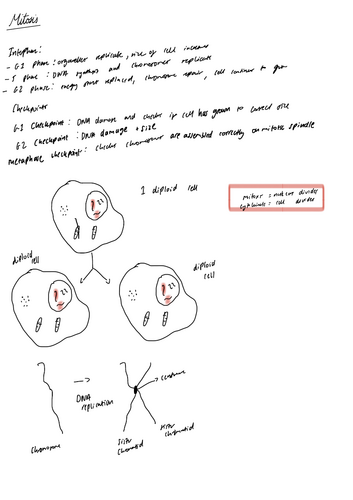 Mitosis
Interphase:
- G1 phase: organelles replicate, size of cell increase
- S phase: DNA synthesis and chromosomes replicate
- G2 phase: energy store replaced, chromosome repair, cell continue to grow
Checkpoints
G1 checkpoint: DNA damage and checks if cell has grown to correct size
G2 checkpoint: DNA damage + size
metaphase checkpoint: checks chromosomes are assembled correctly on mitotic spindle
1 diploid cell
mitosis = nucleus divides
cytokinesis = cell divides
diploid
cell
diploid
cell
DNA
replication
centromere
Chromosome
sister
chromatid
sister
chromatid